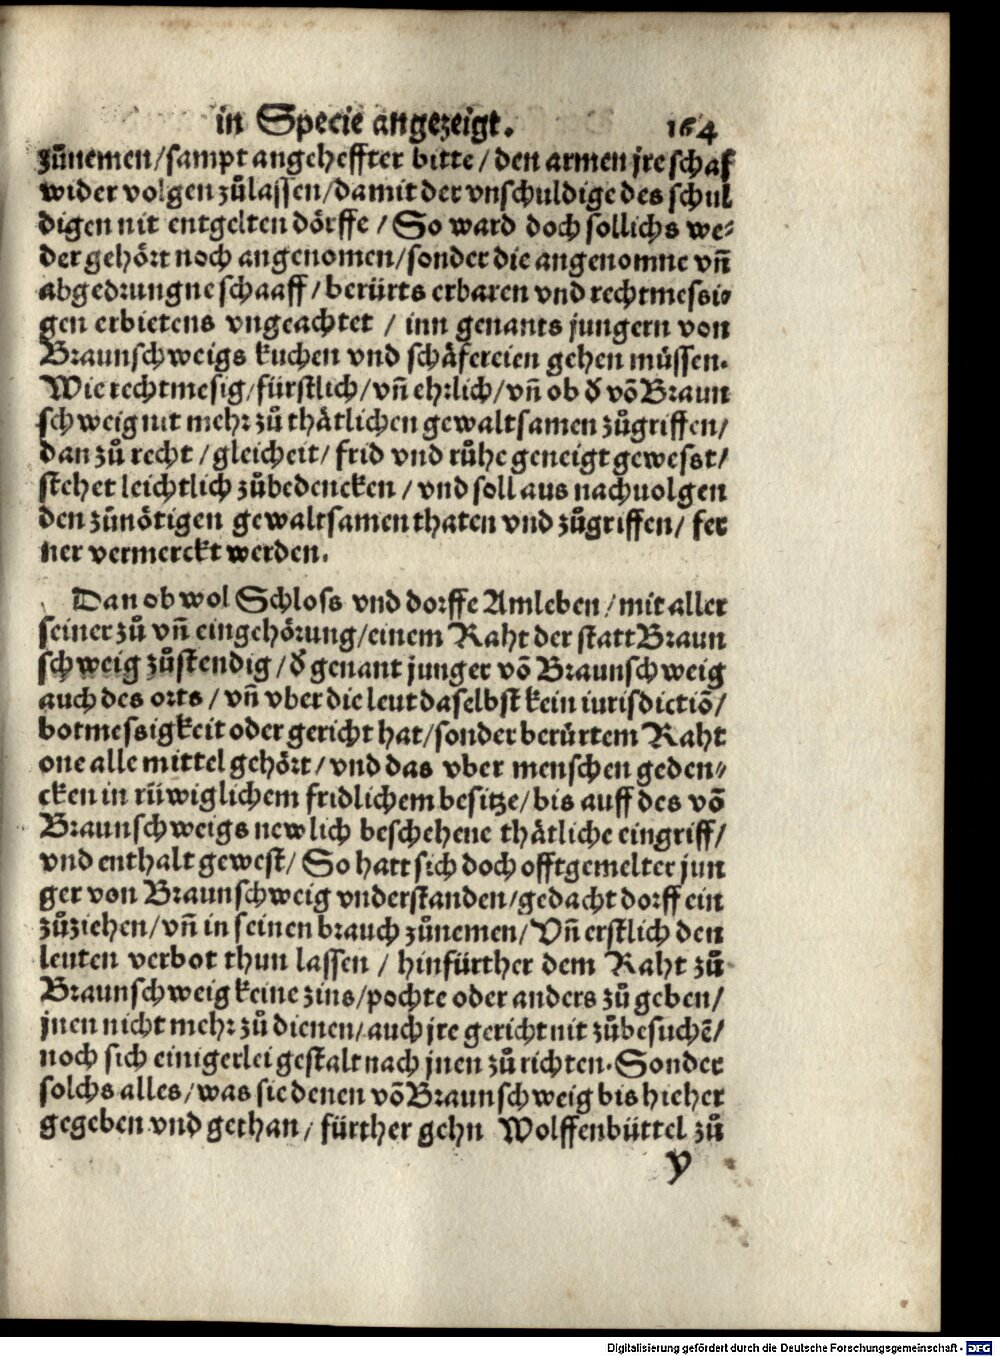 in Specie angezeigt. 164
zůnemen/sampt angeheffter bitte/den armen jre schaf
wider volgen zůlassen/damit der vnschuldige des schul
digen nit entgelten dörffe/So ward doch sollichs we⸗
der gehört noch angenomen/sonder die angenomne vñ
abgedrungne schaaff/berürts erbaren vnd rechtmessi⸗
gen erbietens vngeachtet/inn genants jungern von
Braunschweigs kuchen vnd schäfereien gehen müssen.
Wie rechtmesig/fürstlich/vñ ehrlich/vñ ob ď võ Braun
schweig nit mehr zů thätlichen gewaltsamen zůgriffen/
dan zů recht/gleicheit/frid vnd růhe geneigt gewesst/
stehet leichtlich zůbedencken/vnd soll aus nachuolgen
den zůnötigen gewaltsamen thaten vnd zůgriffen/fer
ner vermerckt werden.
Dan ob wol Schloss vnd dorffe Amleben/mit aller
seiner zů vñ eingehörung/einem Raht der statt Braun
schweig zůstendig/ď genant junger võ Braunschweig
auch des orts/vñ vber die leut daselbst kein iurisdictiõ/
botmessigkeit oder gericht hat/sonder berürtem Raht
one alle mittel gehört/vnd das vber menschen geden⸗
cken in rüwiglichem fridlichem besitze/bis auff des võ
Braunschweigs newlich beschehene thätliche eingriff/
vnd enthalt gewest/So hatt sich doch offtgemelter jun
ger von Braunschweig vnderstanden/gedacht dorff ein
zůziehen/vñ in seinen brauch zůnemen/Vñ erstlich den
leuten verbot thun lassen/hinfürther dem Raht zů
Braunschweig keine zins/pochte oder anders zů geben/
jnen nicht mehr zů dienen/auch jre gericht nit zůbesuchẽ/
noch sich einigerlei gestalt nach jnen zů richten. Sonder
solchs alles/was sie denen võ Braunschweig bis hieher
gegeben vnd gethan/fürther gehn Wolffenbüttel zů
y
Digitalisierung gefördert durch die Deutsche Forschungsgemeinschaft - DFG